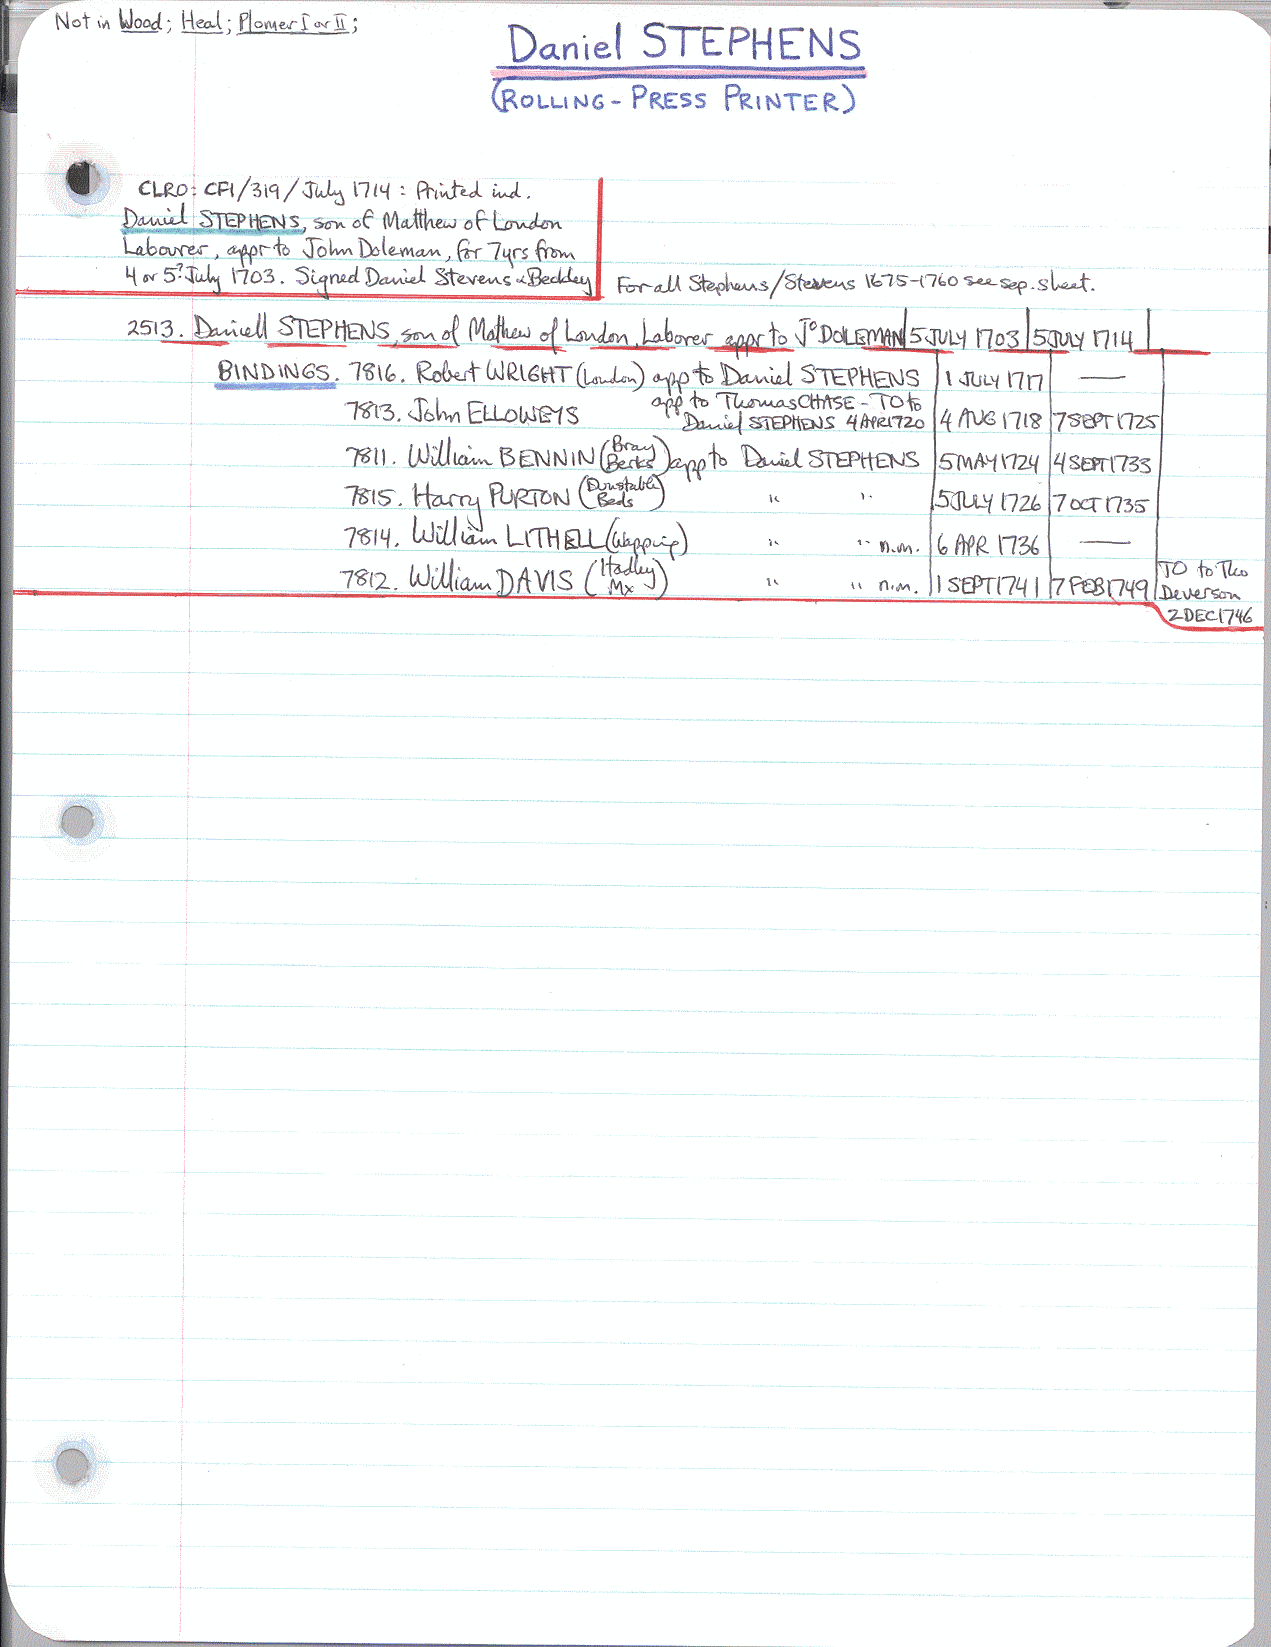 Not in Wood; Heal; Plomer I or II;
Daniel STEPHENS
(ROLLING-PRESS PRINTER)
CLRO: CF1/319/July 1714: Printed ind.
Daniel STEPHENS, son of Matthew of London
Labourer, appr to John Doleman, for 7yrs from
4 or 5? July 1703. Signed Daniel Stevens & Beckley
For all Stephens/Stevens 1675-1760 see sep. sheet.
2513. Daniell STEPHENS, son of Mathew of London, Laborer appr to Jo DOLEMAN 5 JULY 1703 5 JULY 1714
BINDINGS. 7816. Robert WRIGHT (London) app to Daniel STEPHENS 1 JULY 1717 —
7813. John ELLOWEYS app to Thomas CHASE - TO to
Daniel STEPHENS 4 APR 1720 4 AUG 1718 7 SEPT 1725
7811. William BENNIN (Bray Berks) app to Daniel STEPHENS 5 MAY 1724 4 SEPT 1733
7815. Harry PURTON (Dunstable Beds) " " 5 JULY 1726 7 OCT 1735
7814. William LITHELL (Wapping) " " n.m. 6 APR 1736 —
7812. William DAVIS (Hadley Mx) " " n.m. 1 SEPT 1741 7 FEB 1749 TO to Tho
Deverson
2 DEC 1746